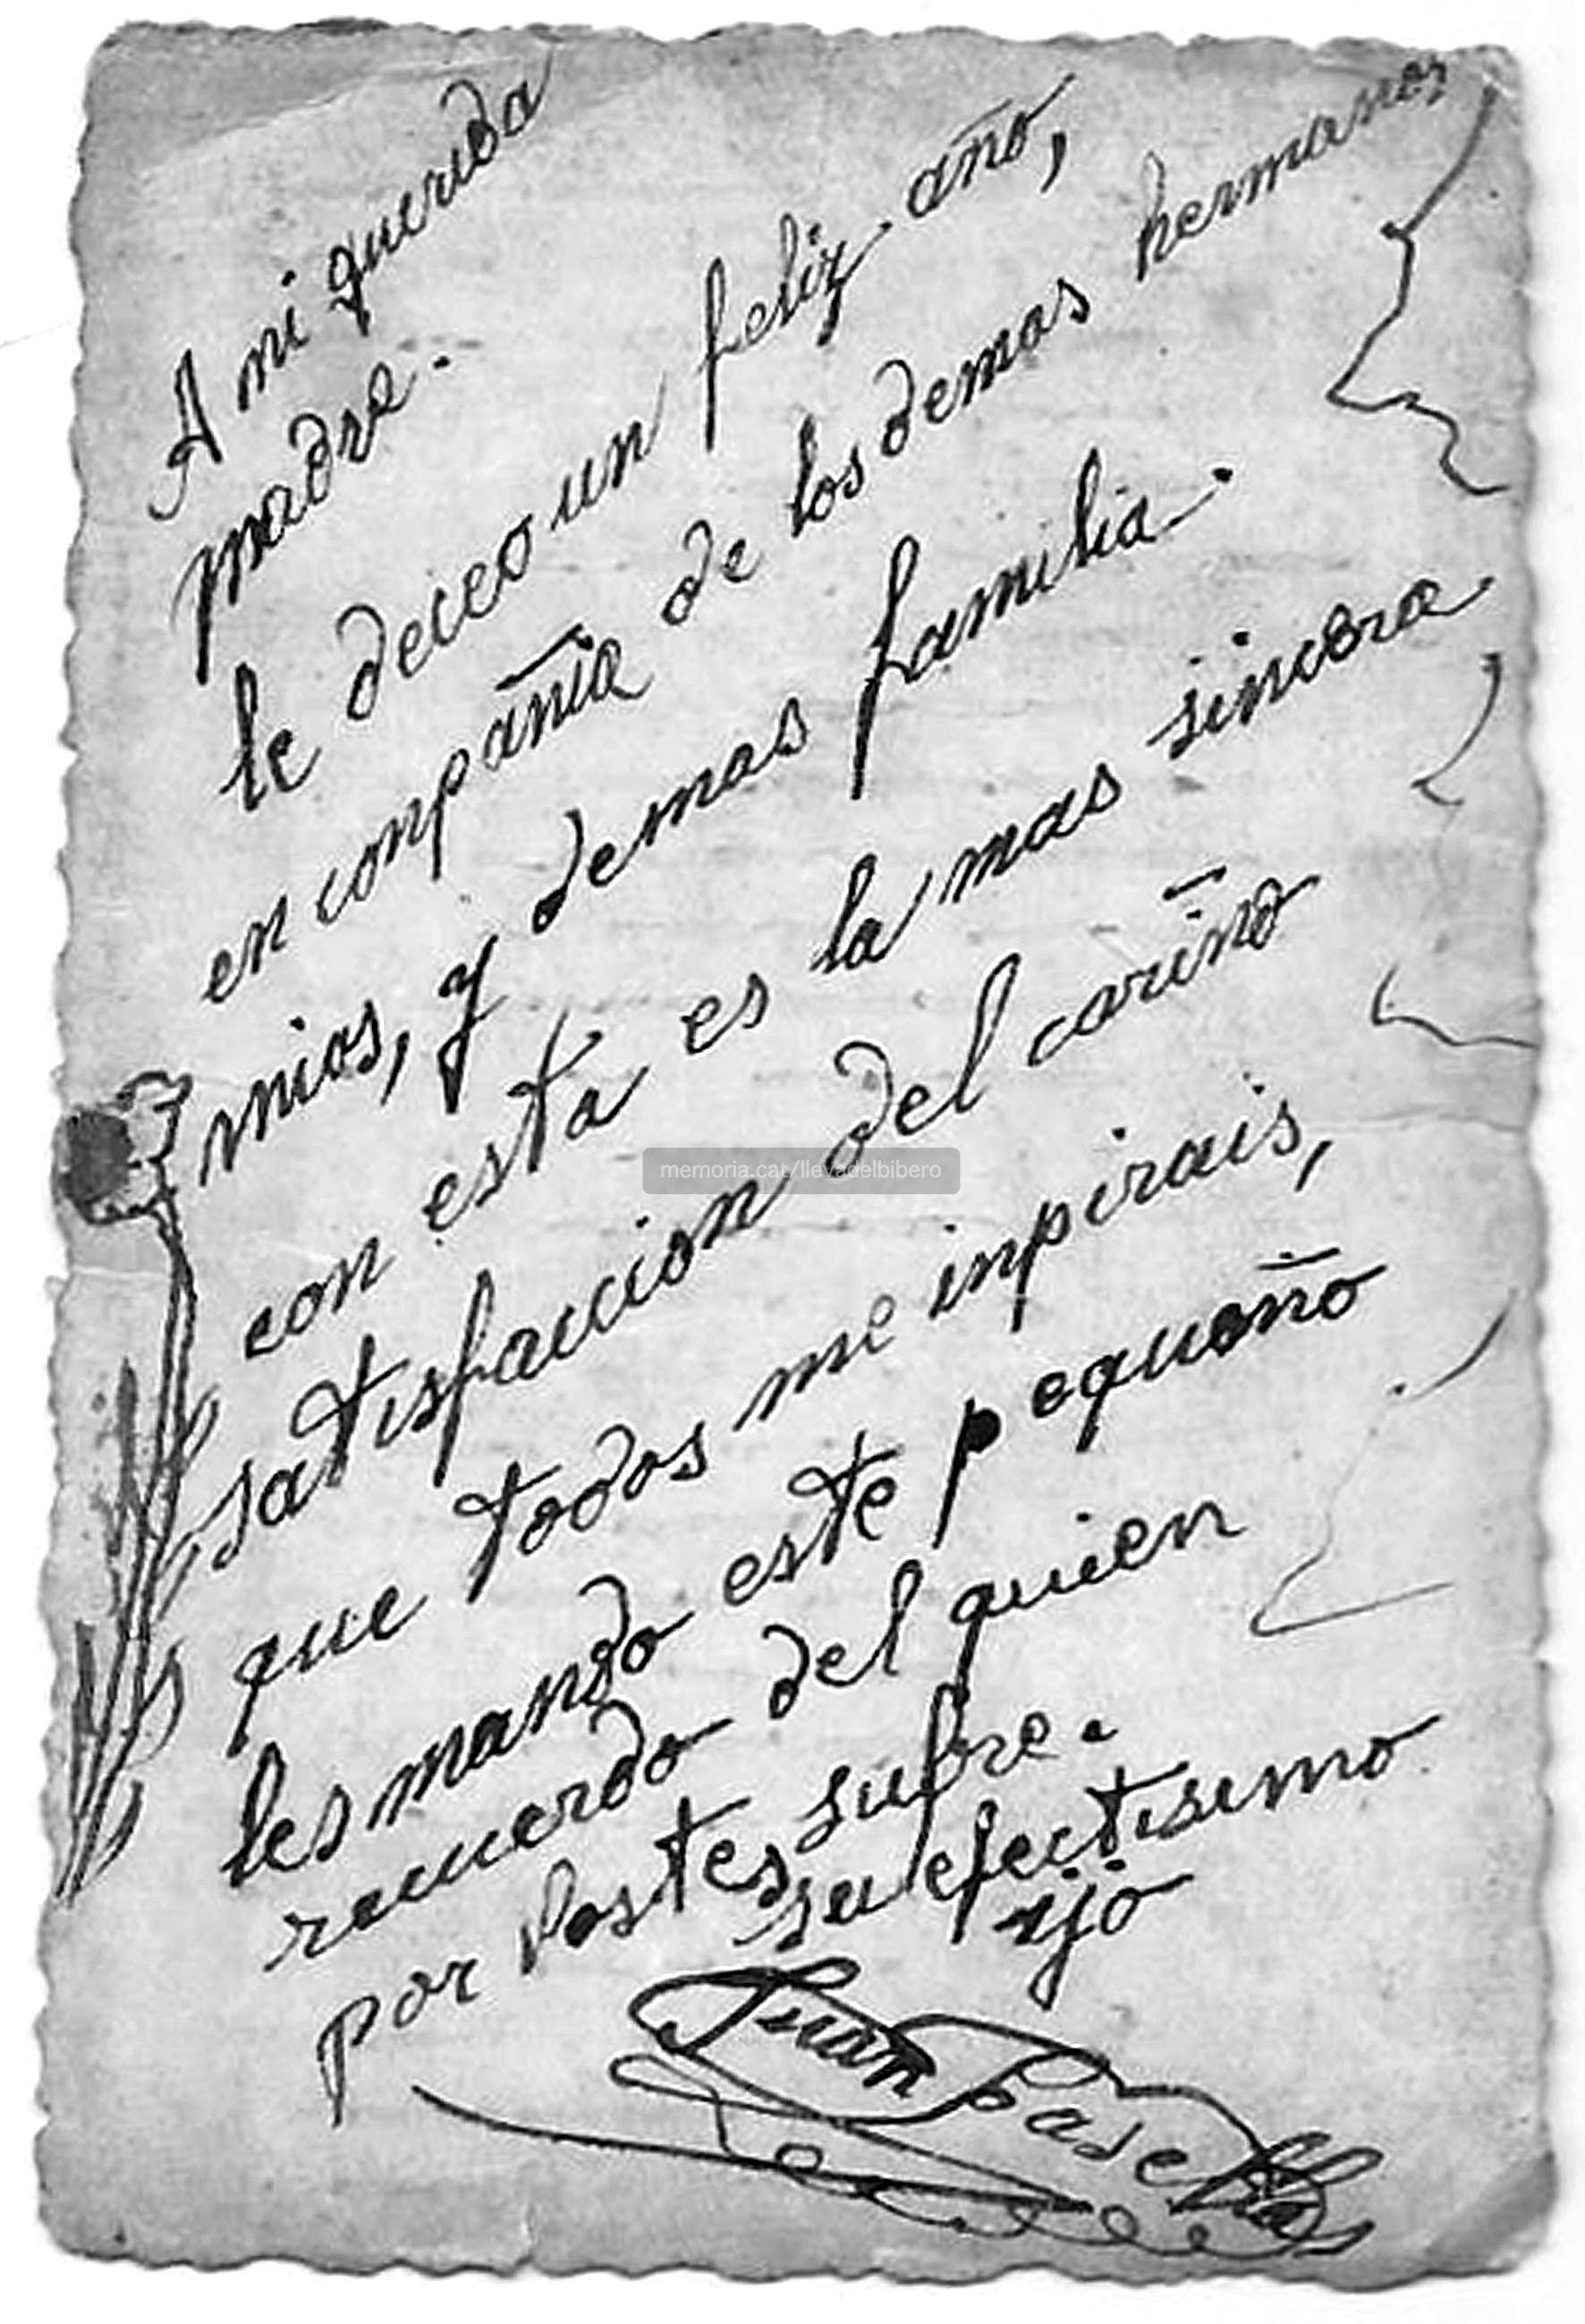 A mi querida
madre.
le deceo un feliz año,
en conpañia de los demas hermanos
mios, y demas familia.
con esta es la mas sincera
satisfaccion del cariño
que todos me inpirais,
les mando este pequeño
recuerdo del quien
por bostes sufre.
su efectisimo
ijo
Juan Casellas
memoria.cat/llevadelbibero